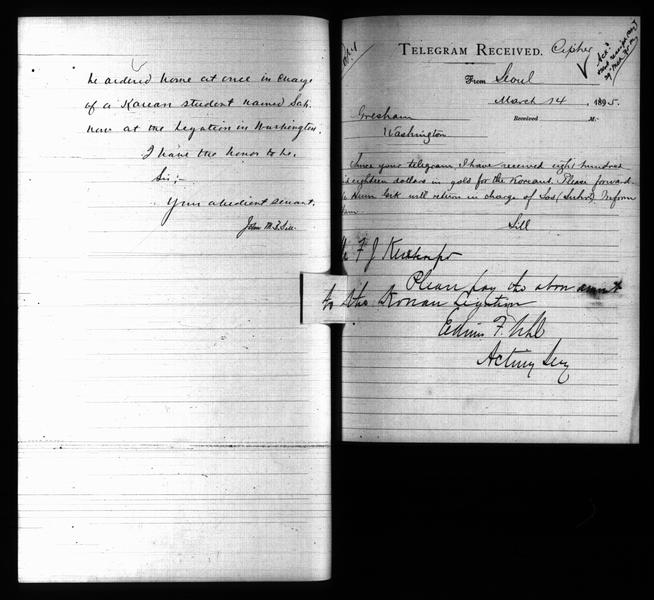 be ordered home at once in charge
of a Korean student named Soh.
now at the Legation in Washington.
I have the honor to be,
Sir;-
Your obedient servant,
John M. B. Sill.
TELEGRAM RECEIVED. Cipher
From Seoul
March 14, 1895.
Gresham Received M.
Washington
Since your telegram, I have received eight hundred
eighteen dollars in gold for the Koreans. Please forward.
will return in charge of Inform
Sill
F J
Please pay the above amount
to the Korean Legation
Edwin F. Uhl
Acting Secy